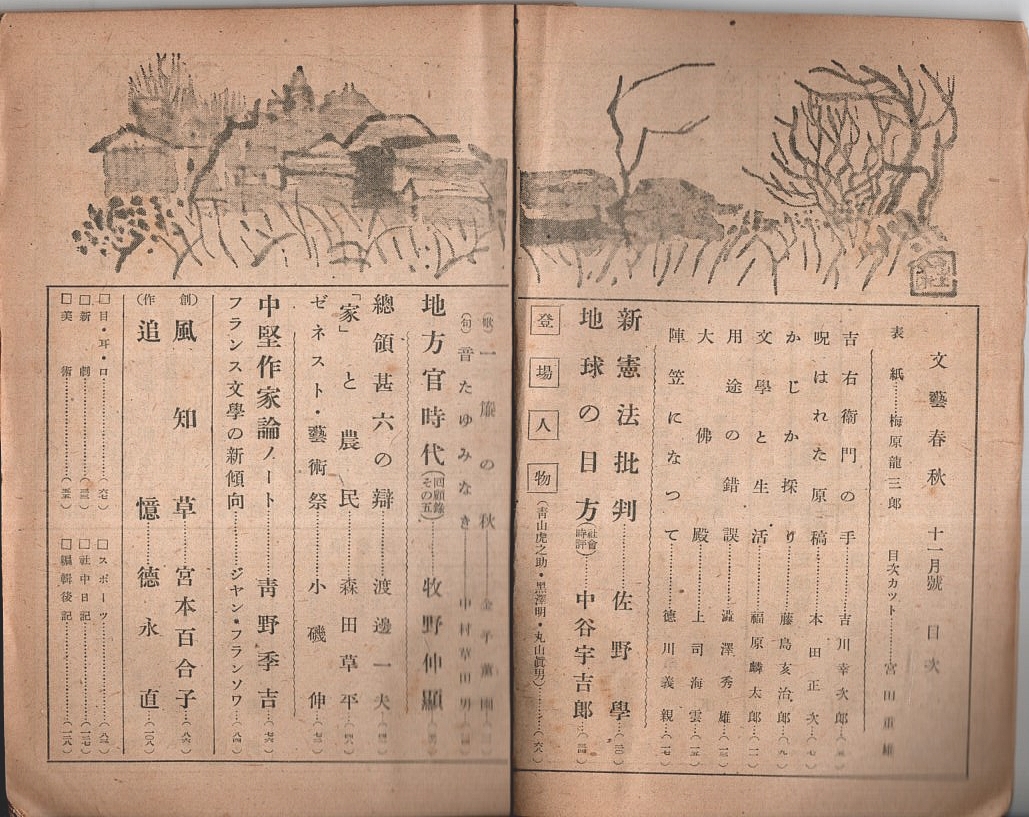 文藝春秋 十一月號 目次
表紙…………梅原龍三郎 目次カツト…………宮田重雄
吉右衞門の手…………吉川幸次郎
呪はれた原稿…………本田正次…(七)
かじか採り…………藤島亥治郎…(九)
文學と生活…………福原麟太郎…(一一)
用途の錯誤…………澁澤秀雄…(一三)
大佛殿…………上司海雲…(一五)
陣笠になつて…………德川義親…(一七)
新憲法批判…………佐野學…(一〇)
地球の目方(社會時評)…………中谷宇吉郎…(二四)
登場人物(靑山虎之助・黑澤明・丸山眞男)…………(六八)
(歌)一旅の秋…………金子薰園
(句)音たゆみなき…………中村草田男
地方官時代(回顧錄その五)…………牧野伸顯
總領甚六の辯…………渡邊一夫
「家」と農民…………森田草平…(四八)
ゼネスト・藝術祭…………小磯伸
中堅作家論ノート…………靑野季吉…(七六)
フランス文學の新傾向…………ジヤン・フランソワ…(八四)
(創作)
風知草 宮本百合子…(八六)
追憶 德永直…(一〇八)
□目・耳・口…………(六七)
□新劇…………
□美術…………
□スポーツ…………
□社中日記…………(一二七)
□編輯後記…………(一二八)